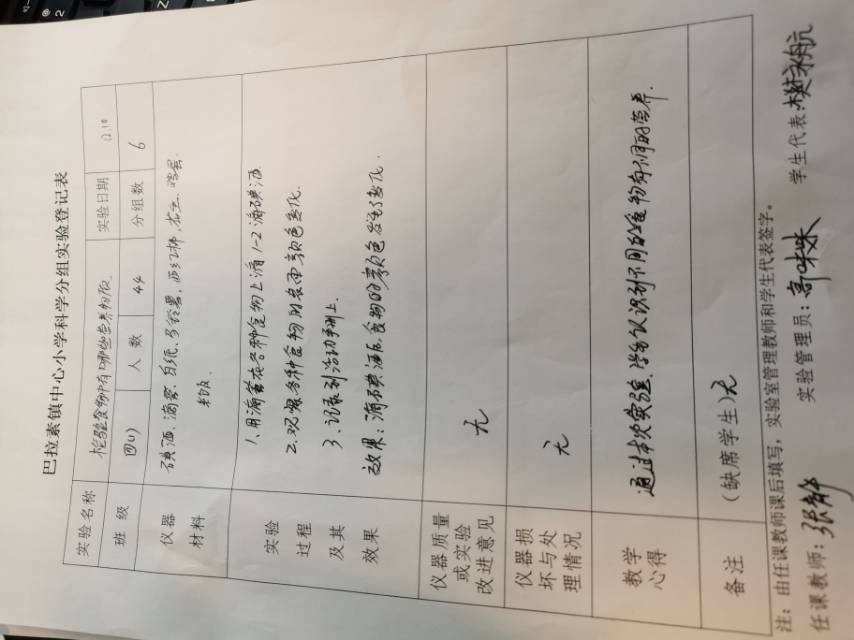 巴拉素镇中心小学科学分组实验登记表
实验名称 检验食物中有哪些营养物质 实验日期 12.18
班 级 四(1) 人 数 44 分组数 6
仪器 材料 碘酒、滴管、白纸、马铃薯、西红柿、花生、鸡蛋、
米饭.
实验 1、用滴管在各种食物上滴1-2滴碘酒
过程 2、观察各种食物的表面颜色变化.
及其 3、记录到活动手册上.
效果 效果：滴碘酒后食物的颜色发生了变化.
仪器质量
或实验 无
改进意见
仪器损
坏与处 无
理情况
教学
心得 通过本次实验，学生认识到不同的食物有不同的营养.
备注 (缺席学生)无
注：由任课教师课后填写，实验室管理教师和学生代表签字。
任课教师: 实验管理员: 学生代表: